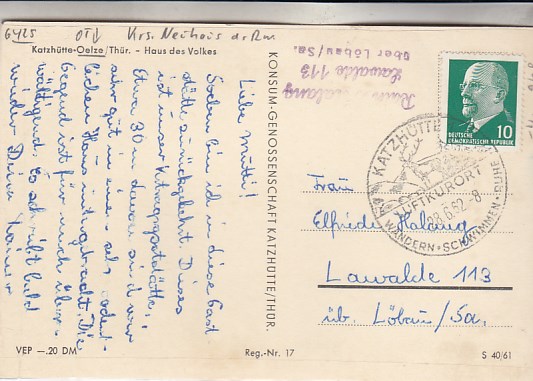 6425
OT↓ Krs. Neuhaus a. Rw.
Katzhütte-Oelze/Thür. - Haus des Volkes
Lawalde 113
über Löbau/Sa.
Liebe Mutti!
Soeben bin ich in diese Gast
stätte zurückgekehrt. Dieses
ist unser Vertragsgaststätte.
Etwa 30 m davon sind wir
sehr gut in einem sehr ordent-
lichen Haus untergebracht. Die
Gegend ist für mich über-
wältigend. Es schreibt bald
wieder Deine
KONSUM-GENOSSENSCHAFT KATZHÜTTE/THÜR.
DEUTSCHE
DEMOKRATISCHE REPUBLIK
10
KATZHÜTTE
LUFTKURORT
28.6.62-8
WANDERN · SCHWIMMEN · RUHE
Frau
Elfriede Halang
Lawalde 113
üb. Löbau/Sa.
VEP —.20 DM
Reg.-Nr. 17
S 40/61